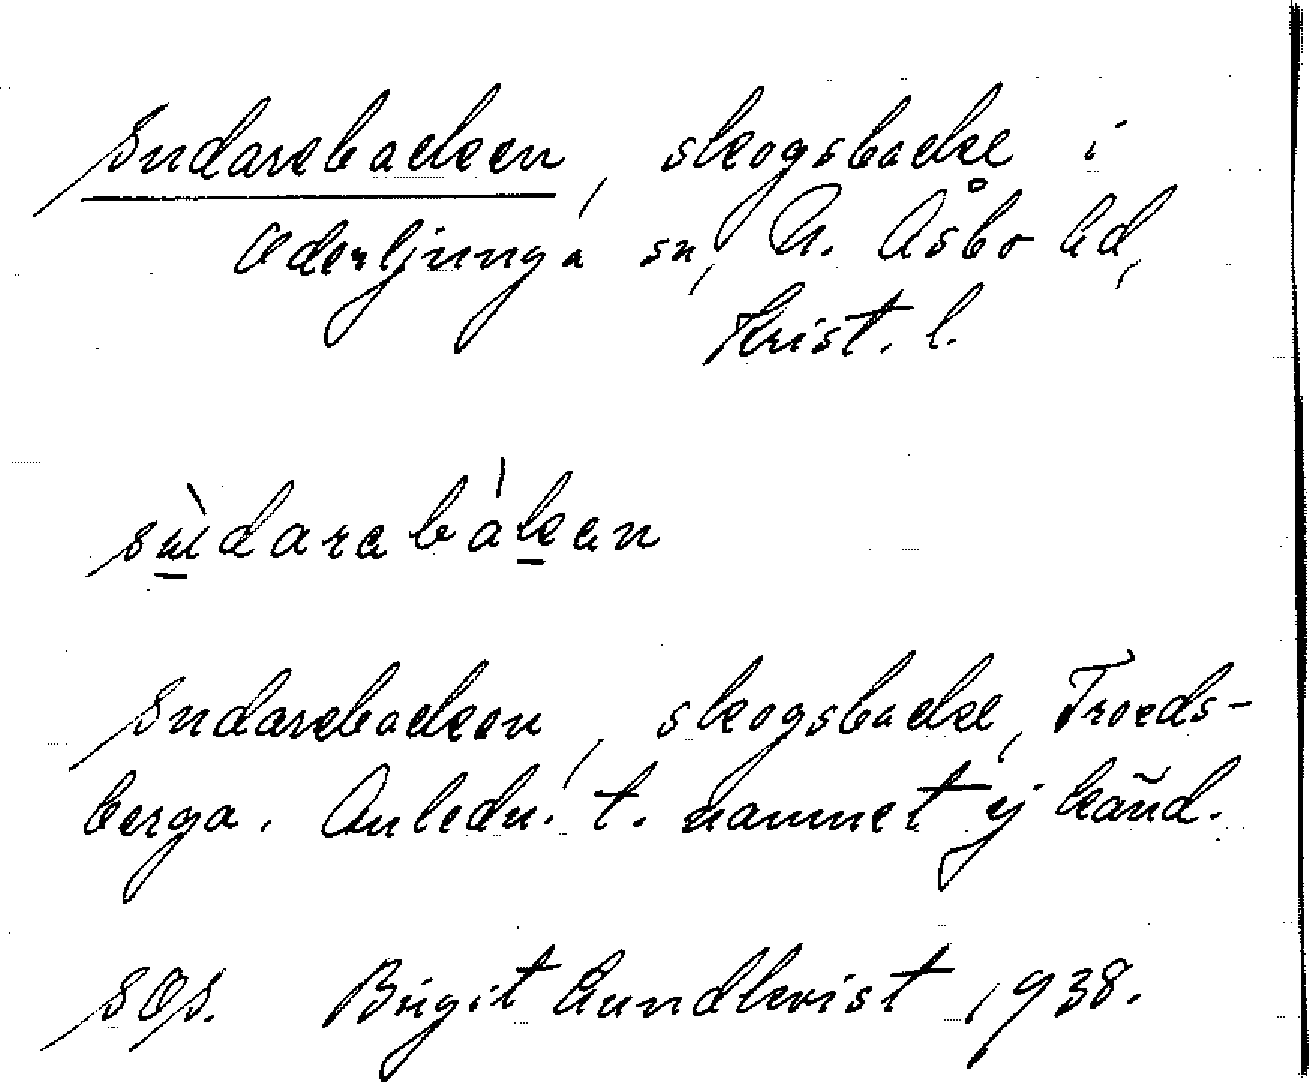 Sudarebacken, skogsbacke i
Oderljunga sn, N. Åsbo hd,
Krist. l.
Sudarebacken, skogsbacke, Troeds-
berga. Anledn. t. namnet ej känd.
SOS. Birgit Lundkvist 1938.